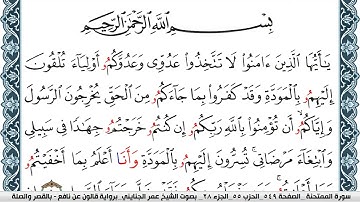 بِسْمِ ٱللَّهِ ٱلرَّحْمَٰنِ ٱلرَّحِيمِ
يَٰأَيُّهَا ٱلَّذِينَ ءَامَنُوا لَا تَتَّخِذُوا عَدُوِّى وَعَدُوَّكُمُۥ أَوْلِيَآءَ تُلْقُونَ
إِلَيْهِمُۥ بِٱلْمَوَدَّةِ وَقَدْ كَفَرُوا بِمَا جَآءَكُمُۥ مِنَ ٱلْحَقِّ يُخْرِجُونَ ٱلرَّسُولَ
وَإِيَّاكُمُۥ أَن تُؤْمِنُوا بِٱللَّهِ رَبِّكُمُۥ إِن كُنتُمُۥ خَرَجْتُمُۥ جِهَٰدًا فِى سَبِيلِى
وَٱبْتِغَآءَ مَرْضَاتِى تُسِرُّونَ إِلَيْهِمُۥ بِٱلْمَوَدَّةِ وَأَنَا أَعْلَمُ بِمَا أَخْفَيْتُمُۥ
سورة الممتحنة . الصفحة ٥٤٩ الحزب ٥٥ . الجزء ٢٨ . بصوت الشيخ عمر الجنايني . برواية قالون عن نافع - بالقصر والصلة